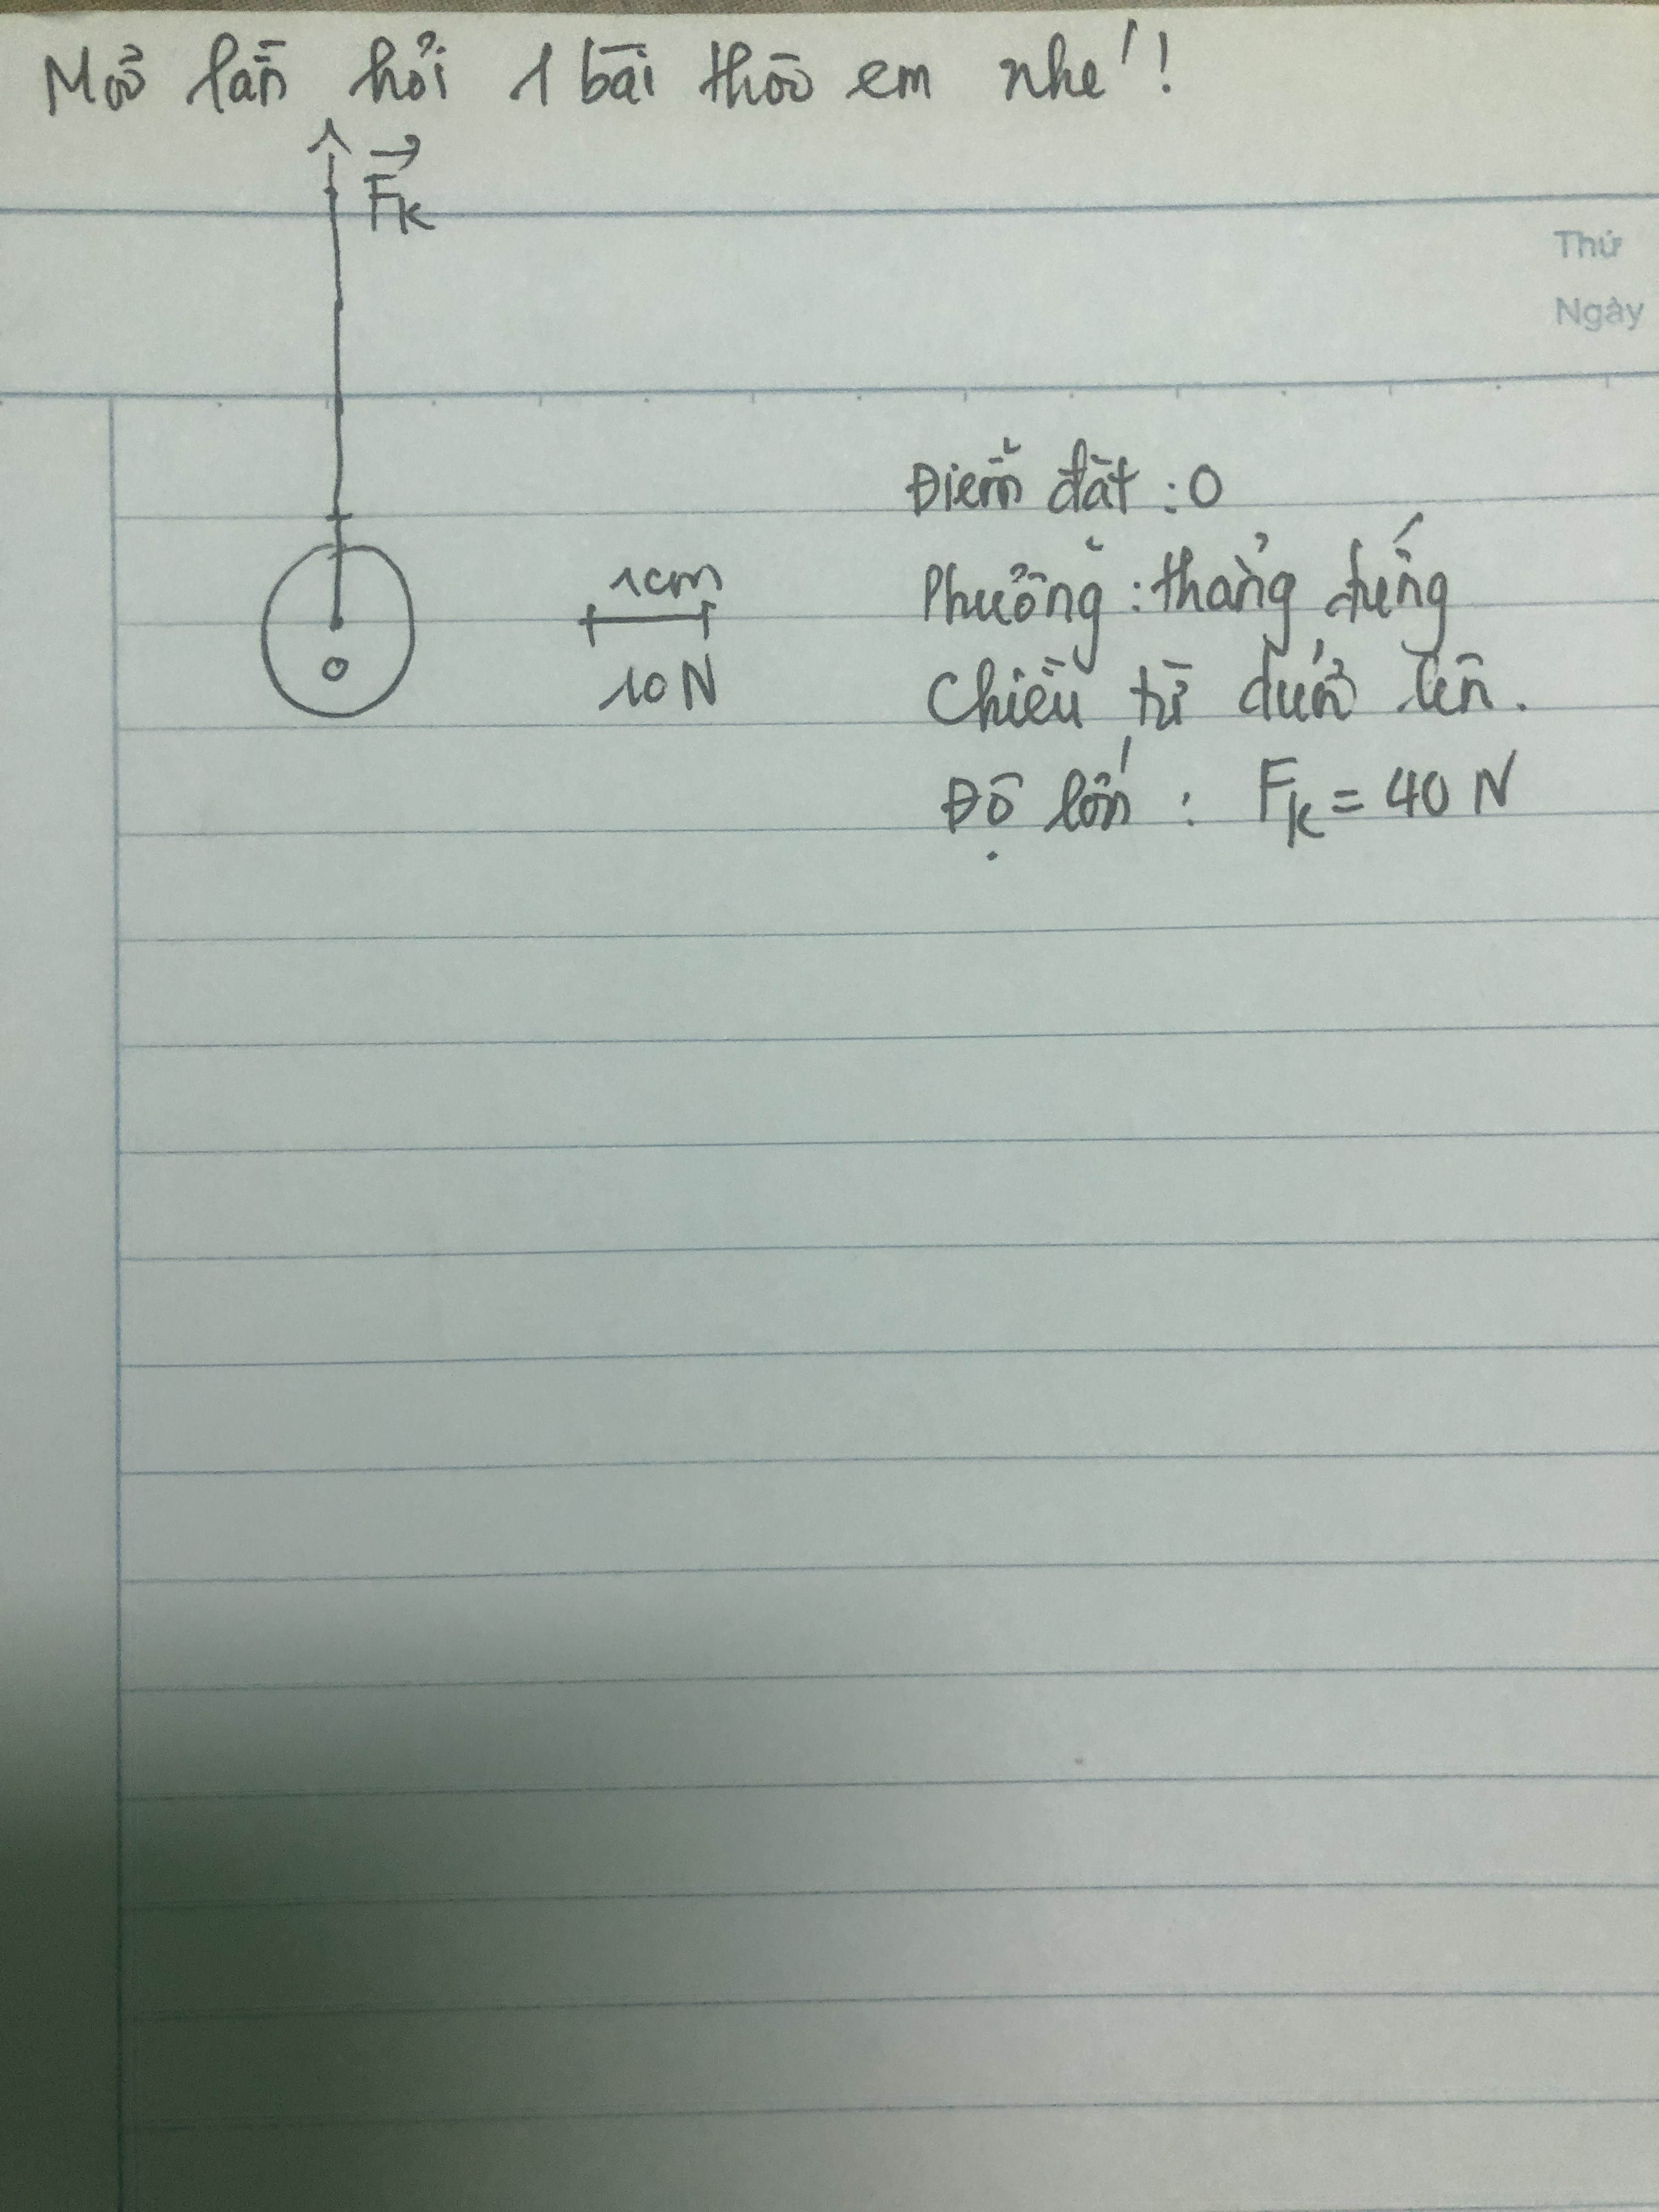 Mỗi lần hỏi 1 bài thôi em nhé!
F_k
Thứ
Ngày
Điểm đặt : O
Phương : thẳng đứng
1cm
Chiều từ dưới lên.
10 N
O
Độ lớn : F_k = 40 N